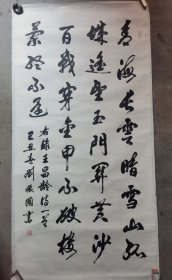 青海長雲暗雪山孤
城遥望玉門関黄沙
百戰穿金甲不破樓
蘭終不還
右錄王昌齡詩一首
己丑春劉國書